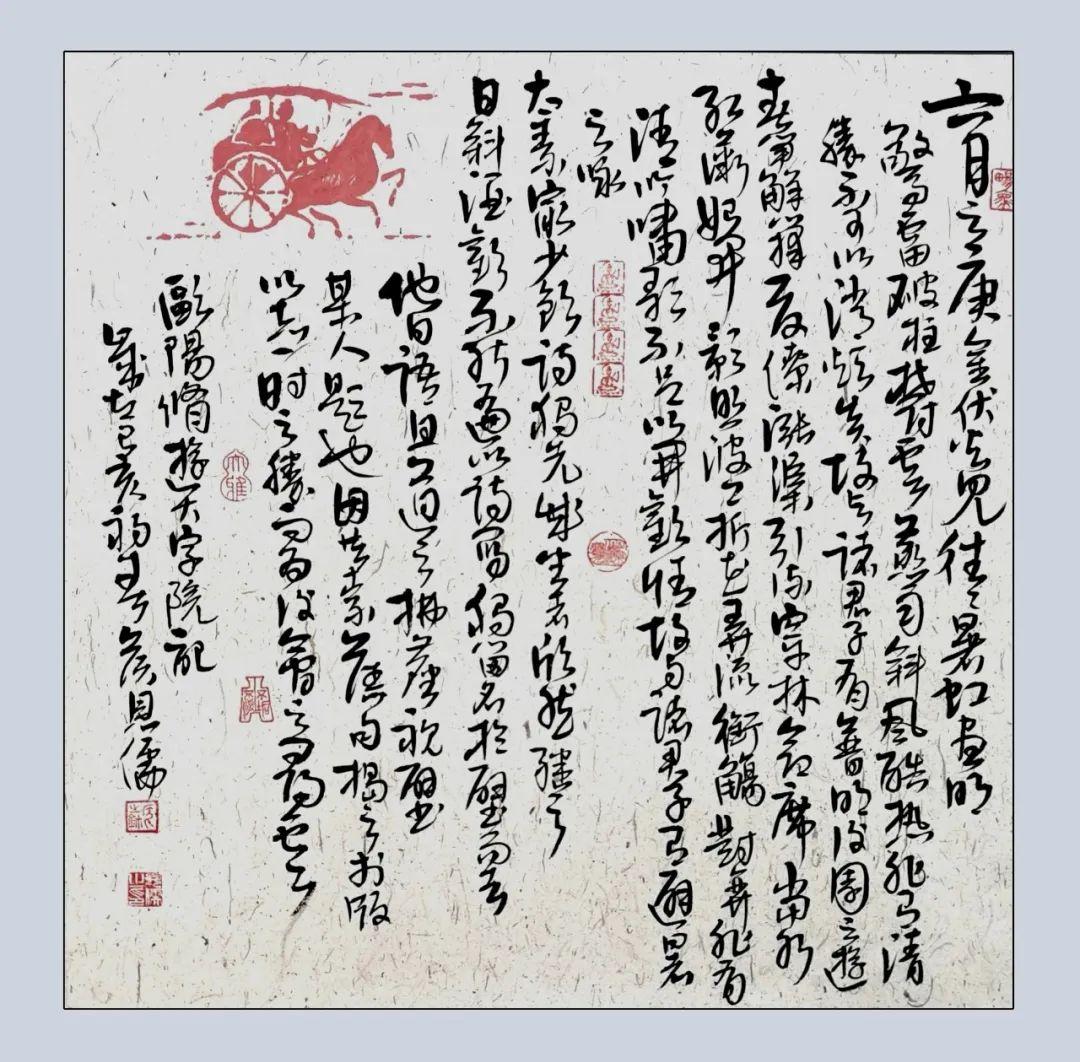 六月之庚金伏火見往往暑虹晝明
驚雷破柱鬱雲蒸雨斜風酷熱非有清
勝不可以消煩炎故與諸君子有普明後園之遊
春筍解籜夏潦漲渠引流穿林命席當水
紅薇始開影照波上折花弄流銜觴對弈非有
清吟嘯歌不足以開歡情故與諸君子有避暑
之詠
太素最少飲詩獨先成坐者欣然繼之
日斜酒歡不能遍以詩寫獨留名於壁而去
他日語且道之拂塵視壁
某人題也因共索舊句揭之於版
以志一時之勝而為後會之尋云
歐陽脩遊大字院記
歲在己亥初